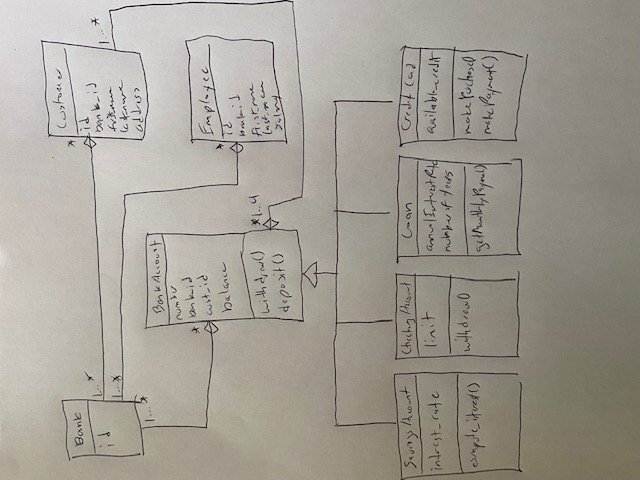 Bank
id
1...*
1...*
1...*
*
Customer
id
bank_id
firstname
lastname
address
1...*
BankAccount
number
bank_id
cust_id
balance
withdraw()
deposit()
*
*1...4
*
Employee
id
bank_id
first_name
last_name
Salary
Savings Account
intrest_rate
compute_iterest()
Checking Account
limit
withdraw()
Loan
annualInterestRate
number of Years
getMonthlyPayment()
Credit Card
available_credit
makePurchase()
makePayment()